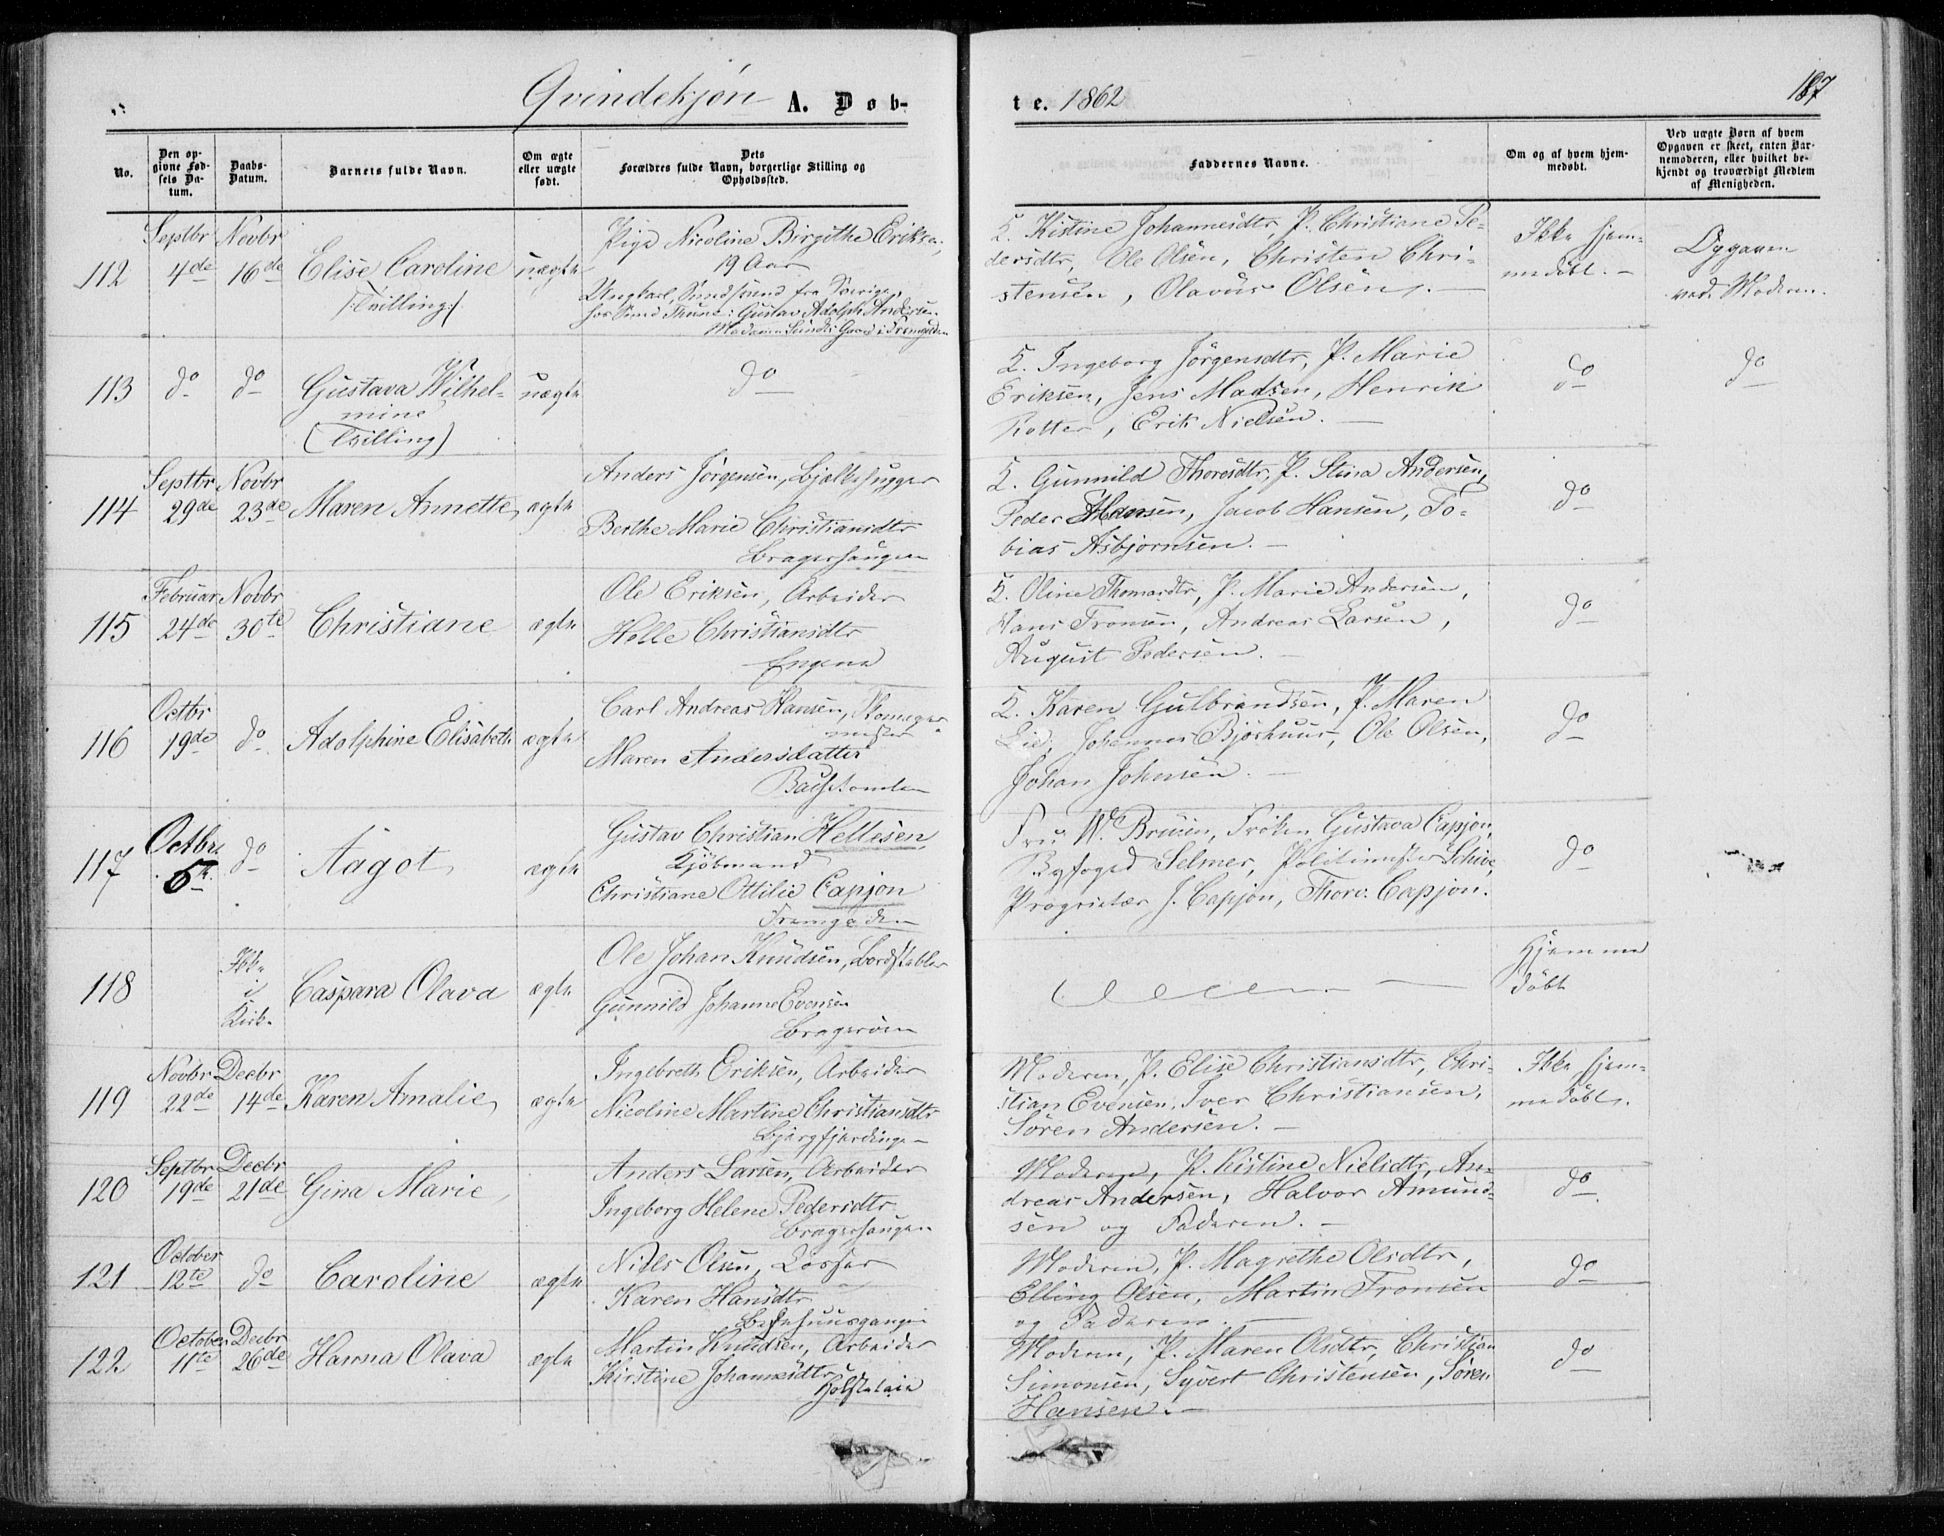 Qvindekjøn A. Døb-
te. 1862
187
No.
Den op-
givne Fød-
sels Da-
tum.
Daabs-
Datum.
Barnets fulde Navn.
Om ægte
eller uægte
født.
Dets
Forældres fulde Navn, borgerlige Stilling og
Opholdssted.
Faddernes Navne.
Om og af hvem hjem-
medøbt.
Ved uægte Børn af hvem
Opgaven er skeet, enten Bar-
nemoderen, eller hvilket be-
kjendt og troværdigt Medlem
af Menigheden.
112
Septbr
4de
Novbr
16de
Elise Caroline
/:Tvilling:/
uægte
Pige Nicoline Birgithe Eriksen,
19 Aar
Ungkarl, fra Sverige,
hos Thune: Gustav Adolph Andersen.
Madame Gaard i Tremgaden
Q. Kistine Johannesdtr, P. Christiane Pe-
dersdtr, Ole Olsen, Christen Chri-
stensen, Olavus Olsen. -
Ikke hjem-
medöbt. -
Opgaven
ved Moderen.
113
do
do
Gustava Wilhel-
mine
(Tvilling)
uægte
do
Q. Ingeborg Jörgensdtr, P. Marie
Eriksen, Jens Madsen, Henrik
Rotter, Erik Nielsen. -
do
do
114
Septbr
29de
Novbr
23de
Maren Annette
ægte
Anders Jörgensen, Bjælkehugger
Berthe Marie Christiansdtr
Bragerhaugen
Q. Gunnild Thoresdtr, P. Stina Andersen,
Peder Hansen, Jacob Hansen, To-
bias Asbjørnsen. -
do
115
Februar
24de
Novbr
30te
Christiane
ægte
Ole Eriksen, Arbeider
Helle Christiansdtr
Engene
Q. Oline Thomasdtr, P. Marie Andersen,
Hans Tronsen, Andreas Larsen,
August Pedersen. -
do
116
Octbr
19de
do
Adolphine Elisabeth
ægte
Carl Andreas Hansen, Skomager-
mester
Maren Andersdatter
Q. Karen Gulbrandsen, P. Maren
Lie, Johannes Bjöshuus, Ole Olsen,
Johan Johnsen. -
do
117
Octbr.
5te
do
Aagot
ægte
Gustav Christian Hellesen,
Kjöbmand
Christiane Ottilie Capjon
Tremgaden
Fru W. Bruun, Fröken Gustava Capjon,
Byfoged Selmer, Politimester Schive,
Proprietær J. Capjon, Thorv. Capjon.
do
118
Ikke
i
Kirke
Caspara Olava
ægte
Ole Johan Knudsen, Bordstabler
Gunnild Johanne Evensen
Bragerøen
Hjemme
döbt
119
Novbr
22de
Decbr
14de
Karen Amalie
ægte
Ingebreth Eriksen, Arbeider
Nicoline Martine Christiansdtr
Bjergfjerdingen
Moderen, P. Elise Christiansdtr, Chri-
stian Evensen, Iver Christiansen,
Sören Andersen. -
Ikke hjem-
medöbt.
120
Septbr
19de
Decbr
21de
Gina Marie
Anders Larsen, Arbeider
Ingeborg Helene Pedersdtr
Bragerhaugen
Moderen, P. Kistine Nielsdtr, An-
dreas Andersen, Halvor Amund-
sen og Faderen. -
do
121
October
12te
do
Caroline
ægte
Niels Olsen, Losser
Karen Hansdtr
Moderen, P. Magrethe Olsdtr,
Elling Olsen, Martin Tronsen
og Faderen. -
do
122
October
11te
Decbr
26de
Hanna Olava
ægte
Martin Knudsen, Arbeider
Kirstine Johannesdtr
Moderen, P. Maren Olsdtr, Christian
Simonsen, Syvert Christensen, Sören
Hansen. -
do